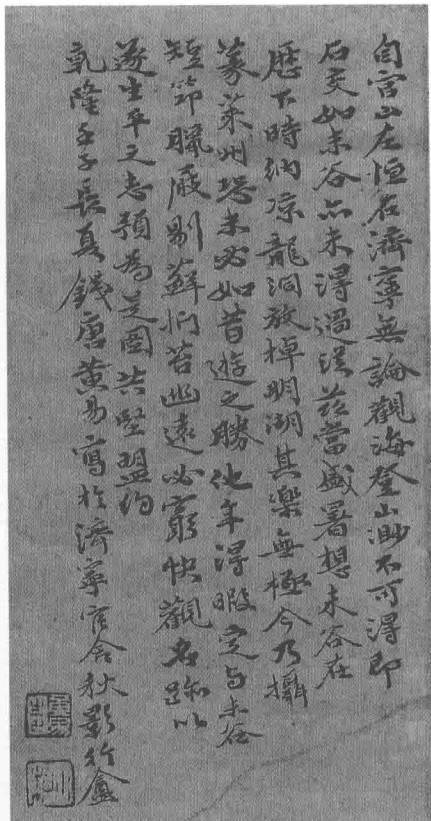 自宦山左恒在濟寧無論觀海登山渺不可得即
石交如未谷亦未得過從茲當盛暑想未谷在
歷下時納涼龍洞放棹明湖其樂無極今乃攝
篆萊州恐未必如昔遊之勝他年得暇定與未谷
短笻臘屐剔蘚捫苔幽遠必窮快觀名跡以
遂生平之志預為是圖共堅盟約
乾隆壬子長夏錢唐黃易寫於濟寧官舍秋影行盦